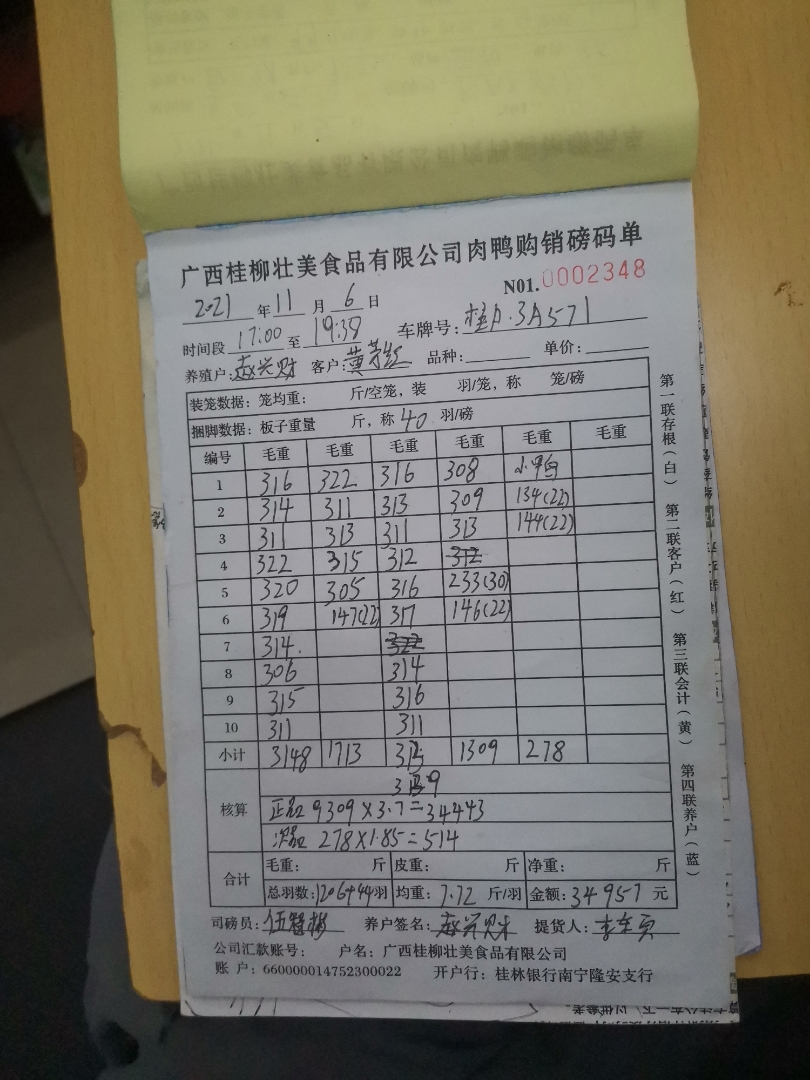 广西桂柳壮美食品有限公司肉鸭购销磅码单
N01.0002348
2021 年 11 月 6 日
时间段 17:00 至 19:38 车牌号: 桂A·3A571
养殖户: 赵兴财 客户: 品种: 单价:
装笼数据: 笼均重: 斤/空笼, 装 羽/笼, 称 笼/磅
捆脚数据: 板子重量 斤, 称 40 羽/磅
编号 毛重 毛重 毛重 毛重 毛重 毛重
1 316 322 316 308 小鸭
2 314 311 313 309 134(22)
3 311 313 311 313 144(22)
4 322 315 312 312
5 320 305 316 233(30)
6 319 147(22) 317 146(22)
7 314. 322
8 306 314
9 315 316
10 311 311
小计 3148 1713 1309 278
核算 3139
正品 9309×3.7=34443
次品 278×1.85=514
合计 毛重: 斤 皮重: 斤 净重: 斤
总羽数: 1206+44羽 均重: 7.72 斤/羽 金额: 34957 元
司磅员: 养户签名: 赵兴财 提货人:
公司汇款账号: 户名: 广西桂柳壮美食品有限公司
账户: 660000014752300022 开户行: 桂林银行南宁隆安支行
第一联存根(白) 第二联客户(红) 第三联会计(黄) 第四联养户(蓝)